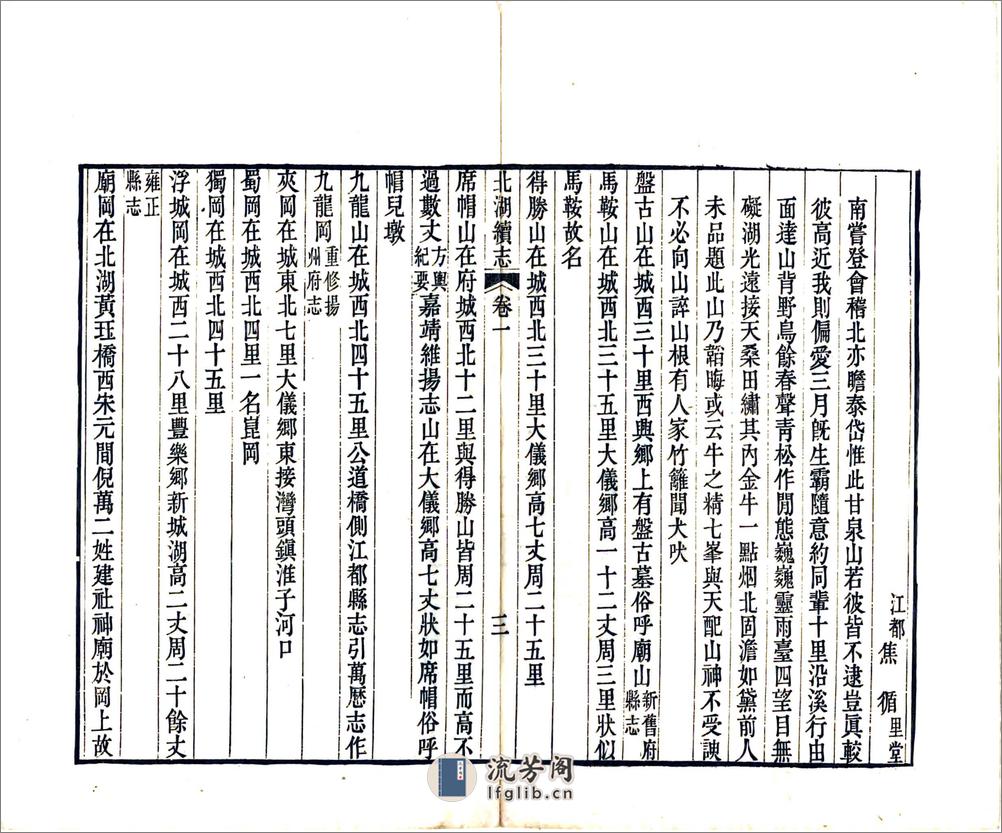 江都焦循里堂
南嘗登會稽北亦瞻泰岱惟此甘泉山若彼皆不逮豈眞較
彼高近我則偏愛三月旣生霸隨意約同輩十里沿溪行由
面達山背野鳥餘春聲靑松作閒態巍巍靈雨臺四望目無
礙湖光遠接天桑田繡其內金牛一點烟北固澹如黛前人
未品題此山乃韜晦或云牛之精七峯與天配山神不受諛
不必向山誶山根有人家竹籬聞犬吠
盤古山在城西三十里西興鄉上有盤古墓俗呼廟山新舊府縣志
馬鞍山在城西北三十五里大儀鄉高一十二丈周三里狀似
馬鞍故名
得勝山在城西北三十里大儀鄉高七丈周二十五里
北湖續志 卷一 三
席帽山在府城西北十二里與得勝山皆周二十五里而高不
過數丈方輿紀要嘉靖維揚志山在大儀鄉高七丈狀如席帽俗呼
帽兒墩
九龍山在城西北四十五里公道橋側江都縣志引萬歷志作
九龍岡重修揚州府志
夾岡在城東北七里大儀鄉東接灣頭鎭淮子河口
蜀岡在城西北四里一名崑岡
獨岡在城西北四十五里
浮城岡在城西二十八里豐樂鄉新城湖高二丈周二十餘丈
雍正縣志
廟岡在北湖黃玨橋西朱元間倪萬二姓建社神廟於岡上故
流芳阁
lfglib.cn